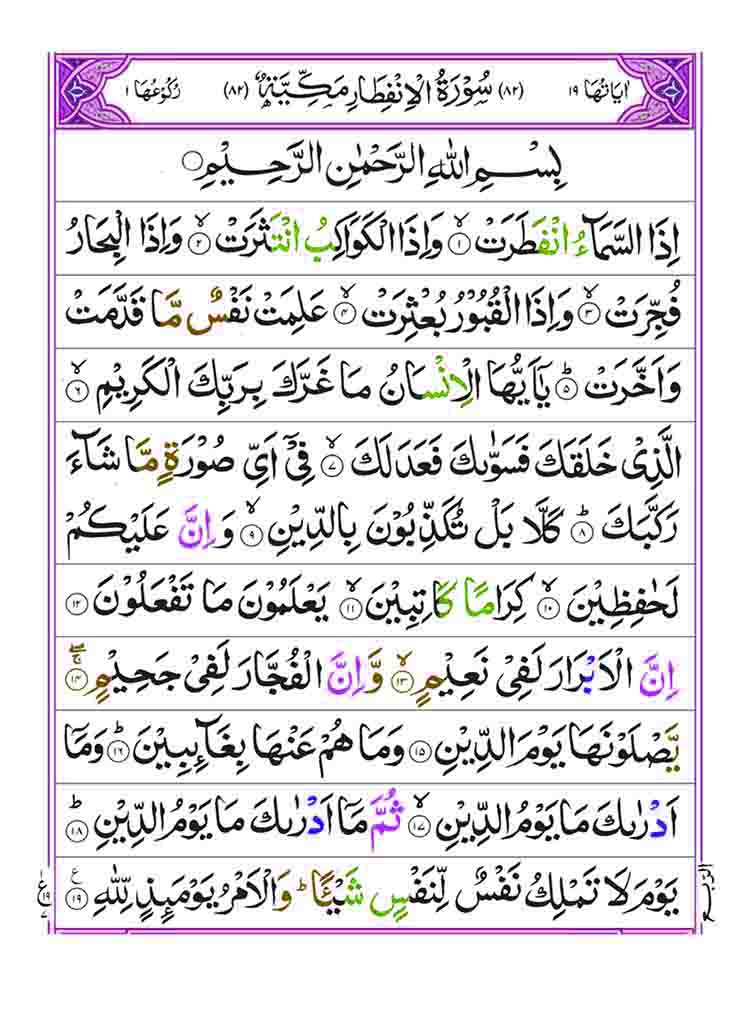 اٰيَاتُهَا ١٩ (٨٢) سُوْرَةُ الْاِنْفِطَارِ مَكِّيَّةٌ (٨٢) رُكُوْعُهَا ١
بِسْمِ اللّٰهِ الرَّحْمٰنِ الرَّحِيْمِ
اِذَا السَّمَآءُ انْفَطَرَتْ ۙ﴿١﴾ وَاِذَا الْكَوَاكِبُ انْتَثَرَتْ ۙ﴿٢﴾ وَاِذَا الْبِحَارُ
فُجِّرَتْ ۙ﴿٣﴾ وَاِذَا الْقُبُوْرُ بُعْثِرَتْ ۙ﴿٤﴾ عَلِمَتْ نَفْسٌ مَّا قَدَّمَتْ
وَاَخَّرَتْ ؕ﴿٥﴾ يٰۤاَيُّهَا الْاِنْسَانُ مَا غَرَّكَ بِرَبِّكَ الْكَرِيْمِ ۙ﴿٦﴾
الَّذِىْ خَلَقَكَ فَسَوّٰٮكَ فَعَدَلَكَ ۙ﴿٧﴾ فِىْۤ اَىِّ صُوْرَةٍ مَّا شَآءَ
رَكَّبَكَ ؕ﴿٨﴾ كَلَّا بَلْ تُكَذِّبُوْنَ بِالدِّيْنِ ۙ﴿٩﴾ وَاِنَّ عَلَيْكُمْ
لَحٰفِظِيْنَ ۙ﴿١٠﴾ كِرَامًا كَاتِبِيْنَ ۙ﴿١١﴾ يَعْلَمُوْنَ مَا تَفْعَلُوْنَ ﴿١٢﴾
اِنَّ الْاَبْرَارَ لَفِىْ نَعِيْمٍ ۙ﴿١٣﴾ وَّاِنَّ الْفُجَّارَ لَفِىْ جَحِيْمٍ ۖۚ﴿١٤﴾
يَّصْلَوْنَهَا يَوْمَ الدِّيْنِ ﴿١٥﴾ وَمَا هُمْ عَنْهَا بِغَآٮِٕبِيْنَ ؕ﴿١٦﴾ وَمَاۤ
اَدْرٰٮكَ مَا يَوْمُ الدِّيْنِ ۙ﴿١٧﴾ ثُمَّ مَاۤ اَدْرٰٮكَ مَا يَوْمُ الدِّيْنِ ؕ﴿١٨﴾
يَوْمَ لَا تَمْلِكُ نَفْسٌ لِّنَفْسٍ شَيْــًٔا ؕ وَالْاَمْرُ يَوْمَٮِٕذٍ لِّلّٰهِ ﴿١٩﴾
الرّبع
ع ١٩ ٧